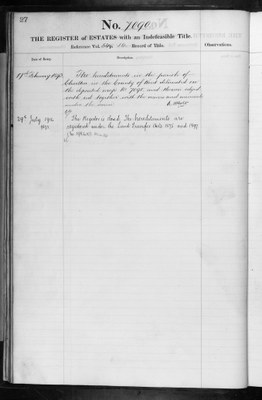 27
No. 7090
THE REGISTER of ESTATES with an Indefeasible Title.
Reference Vol. Record of Title.
Observations.
Date of Entry.
Description
17th February 1893
The hereditaments in the parish of
Charlton in the County of Kent delineated on
the deposited map No 7090 and thereon edged
with red together with the mines and minerals
under the same
29th July 1912
The Registrar's Book, The hereditaments are
registered under the Land Transfer Acts 1875 and 1897